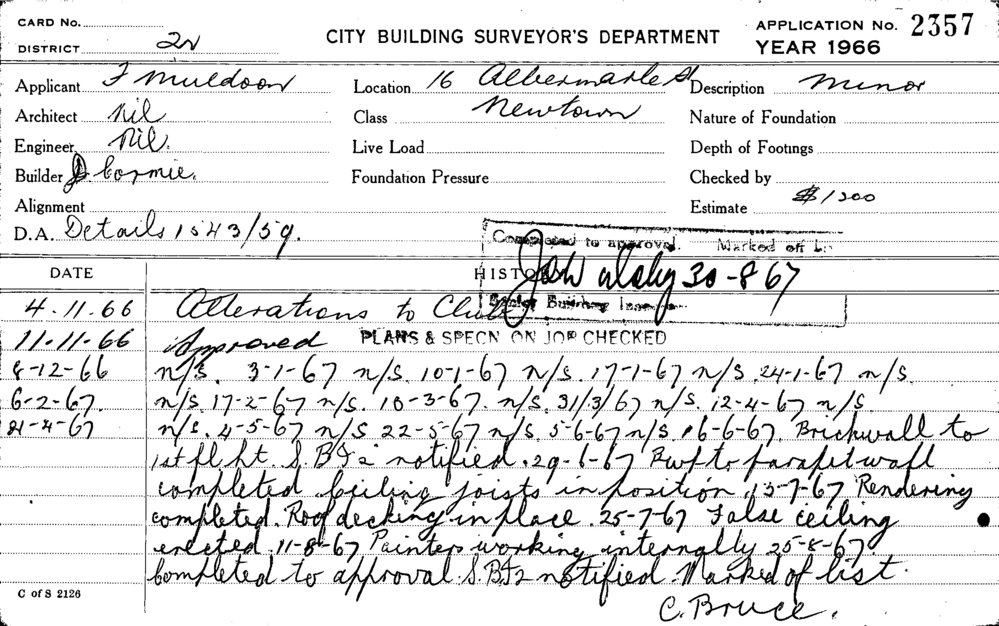 CARD No.
DISTRICT 2N
CITY BUILDING SURVEYOR'S DEPARTMENT
APPLICATION No. 2357
YEAR 1966
Applicant F Muldoon
Location 16 Albermarle St
Description Minor
Architect Nil
Class Newtown
Nature of Foundation
Engineer Nil.
Live Load
Depth of Footings
Builder J Cormie.
Foundation Pressure
Checked by
Alignment
Estimate $1200
D.A. Details 1543/59.
Completed to approval. Marked off
30-8-67
Senior Building
DATE HISTORY
4.11.66 Alterations to Club
11-11-66 Approved PLANS & SPECN ON JOB CHECKED
8-12-66 n/s. 3-1-67 n/s. 10-1-67 n/s. 17-1-67 n/s. 24-1-67 n/s.
6-2-67. n/s. 17-2-67 n/s. 10-3-67. n/s. 31/3/67 n/s. 12-4-67 n/s.
21-4-67 n/s. 4-5-67 n/s 22-5-67 n/s. 5-6-67 n/s. 16-6-67. Brickwall to
1st fl ht. S.B.I. 2 notified. 29-6-67 Bwf to parapet wall
completed ceiling joists in position. 13-7-67 Rendering
completed. Roof decking in place. 25-7-67 False ceiling
erected. 11-8-67 Painters working internally 25-8-67
Completed to approval. S.B.I. 2 notified. Marked of list.
C. Bruce.
C of S 2126